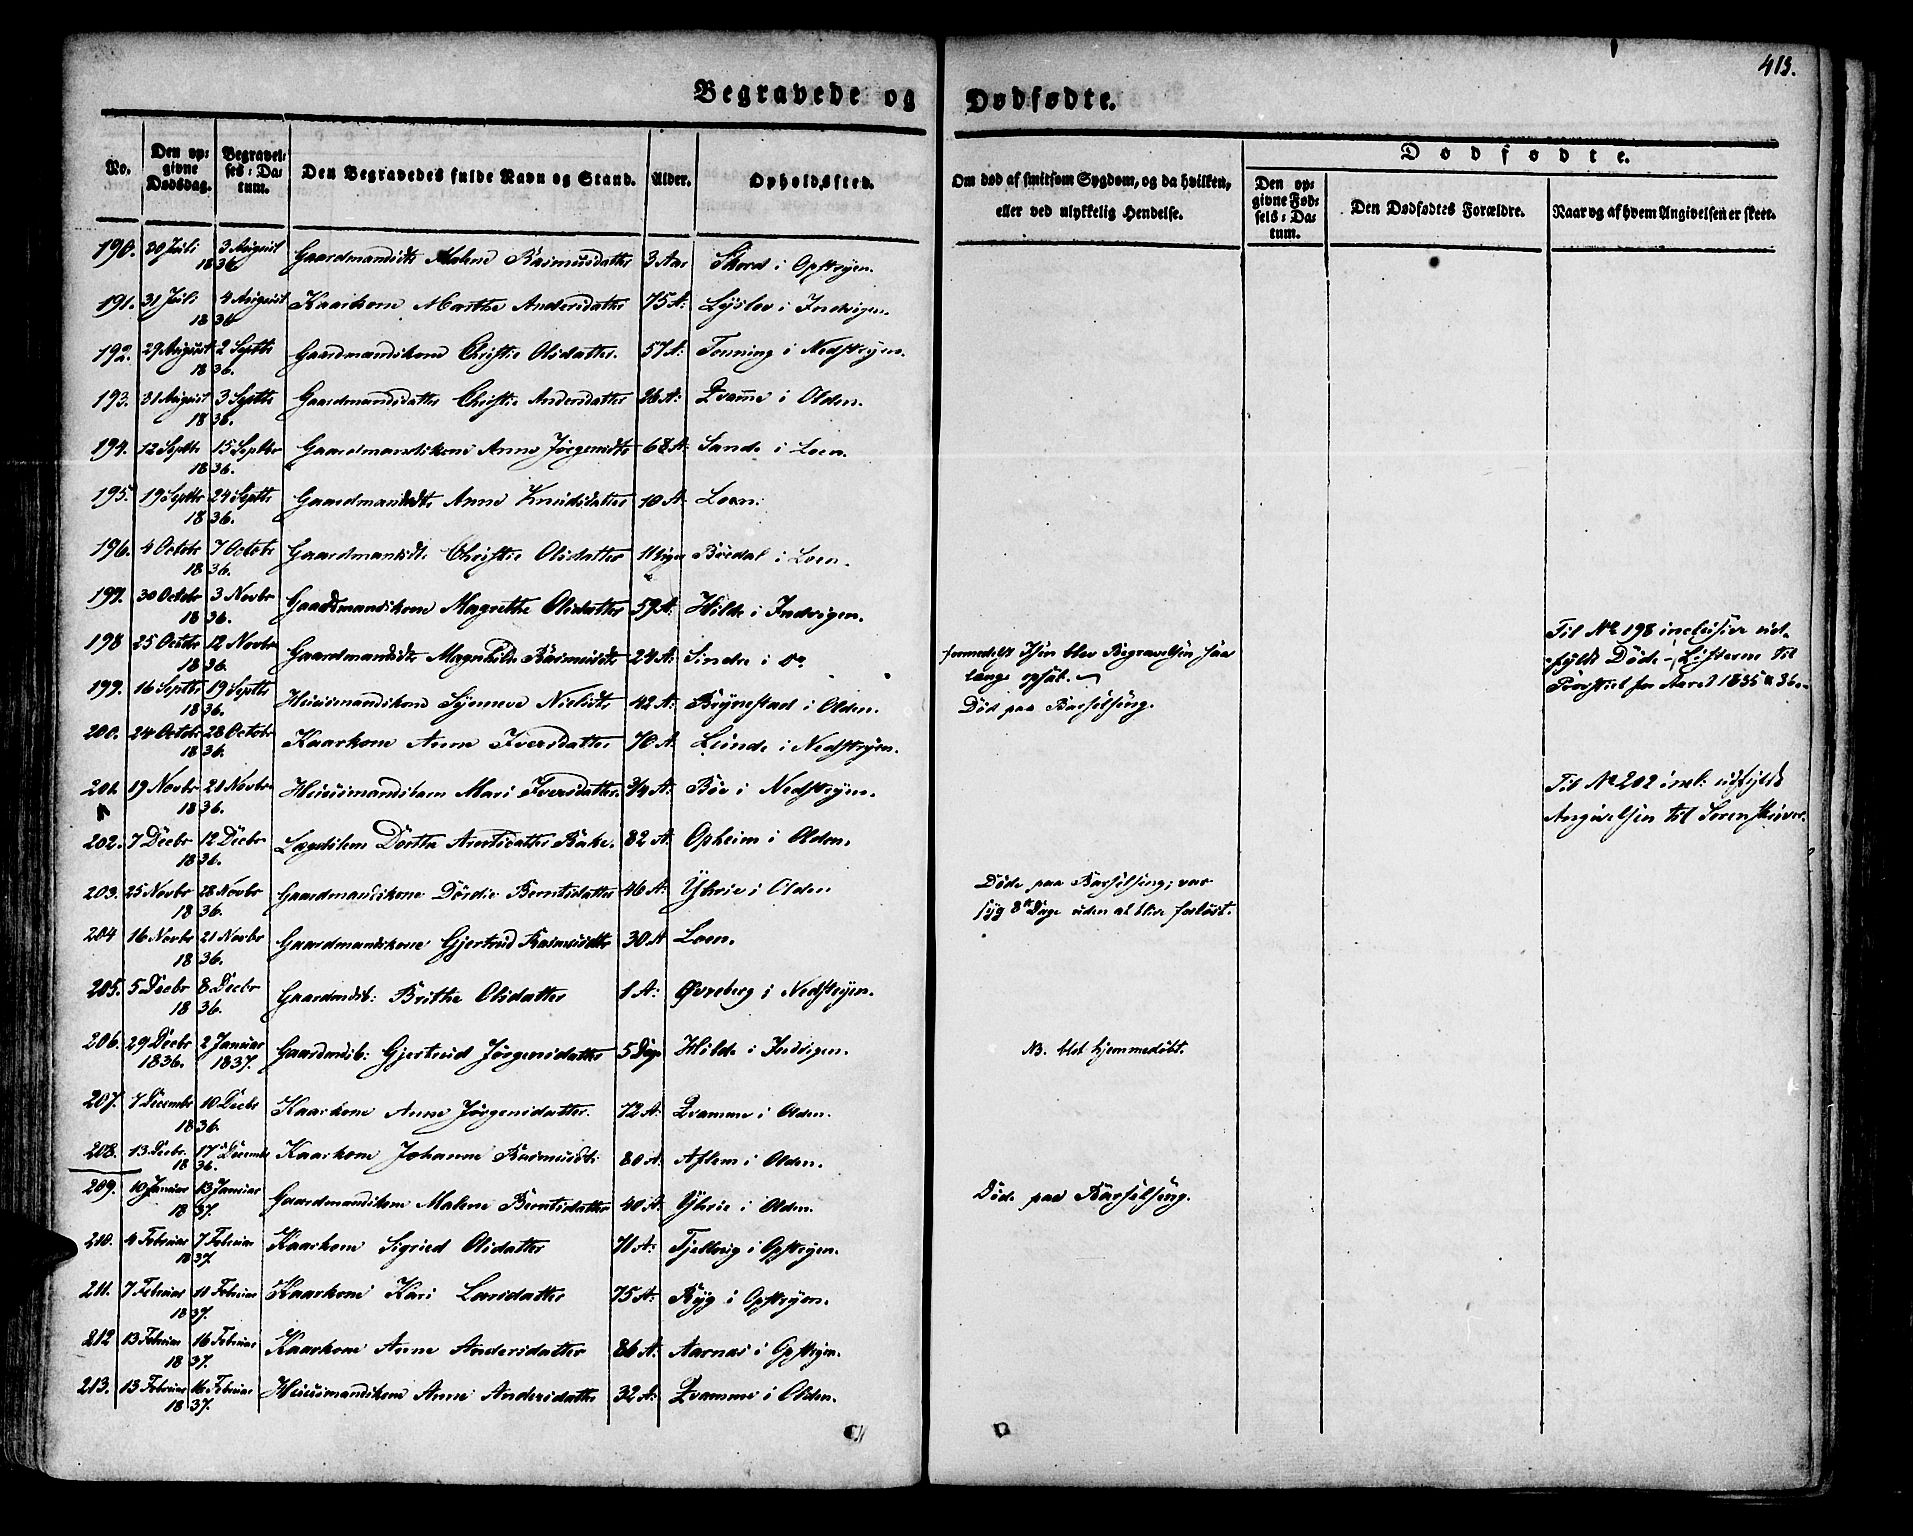 413.
Begravede og Dødfødte.
No. Den opgivne Dødsdag. Begravelses-Datum. Den Begravedes fulde Navn og Stand. Alder. Opholdssted. Om død af smitsom Sygdom, og da hvilken, eller ved ulykkelig Hendelse. Dødfødte.
Den opgivne Fødsels-Datum. Den Dødfødtes Forældre. Naar og af hvem Angivelsen er skeet.
190. 30 Juli 3 August 1836 Gaardmandsdtr Malene Rasmusdatter 3 Aar Skore i Opstryen.
191. 31 Juli 4 August 1836 Kaarkone Marthe Andersdatter 75 A: Lyslo i Indvigen.
192. 29 August 2 Septbr 1836. Gaardmandskone Christie Olsdatter. 57 A: Tonning i Nedstryen.
193. 31 August 3 Septbr 1836. Gaardmandsdatter Christie Andersdatter 36 A: Qvamme i Olden.
194. 12 Septbr 15 Septbr 1836. Gaardmandskone Anne Jørgensdtr 68 A: Sande i Loen.
195. 19 Septbr 24 Septbr 1836. Gaardmandsdtr Anne Knudsdatter 10 A: Loen.
196. 4 Octobr 7 Octobr 1836. Gaardmandsdt. Christie Olsdatter 11 Uger Bødal i Loen.
197. 30 Octobr 3 Novbr 1836. Gaardmandskone Magrethe Olsdatter 59 A: Hilde i Indvigen.
198 25 Octbr 12 Novbr 1836. Gaardmandsdtr Magnhilde Rasmusdtr 24 A: Sindre i do formedelst Isen blev Begravelsen saa
længe opsat. Til No 198 inclusive ud-
fyldt Døde-Listerne til
Provstiet for Aaret 1835 a 36.
199. 16 Septbr 19 Septbr 1836. Huusmandskone Synneve Nielsdtr 42 A: Brynestad i Olden. Død paa Barselseng.
200. 24 Octobr 28 Octobr 1836. Kaarkone Anne Iversdatter 70 A: Lunde i Nedstryen.
201. 19 Novbr 21 Novbr 1836. Huusmandskone Mari Iversdatter. 34 A: Bøe i Nedstryen. Til No 202 incl: udfyldt
Angivelsen til Sorenskriver.
202. 7 Decbr 12 Decbr 1836. Dorthe 82 A: Opheim i Olden.
203. 25 Novbr 28 Novbr 1836. Gaardmandskone Dordie Berntsdatter 46 A: Yhrie i Olden Døde paa Barselseng; var
syg 8te Dage uden at blive forløst.
204 16 Novbr 21 Novbr 1836. Gaardmandskone Gjertrud Rasmusdtr 30 A Loen.
205. 5 Decbr 8 Decbr 1836. Gaardmdsb: Brithe Olsdatter 1 A: Øvreberg i Nedstryen.
206. 29 Decbr 1836. 2 Januar 1837. Gaardmdsb: Gjertrud Jørgensdatter 5 Dage Hilde i Indvigen. NB. blot hjemmedøbt.
207. 7 Decembr 10 Decbr 1836. Kaarkone Anne Jørgensdatter. 72 A: Qvamme i Olden.
208. 13 Decbr. 17 Decembr 1836. Kaarkone Johanne Rasmusdt: 80 A: Aflem i Olden.
209. 10 Januar 13 Januar 1837. Gaardmandskone Malene Berntsdatter 40 A: Yhrie i Olden. Døde paa Barselseng.
210. 4 Februar 7 Februar 1837. Kaarkone Sigried Olsdatter 71 A: Tjellaug i Opstryen.
211. 7 Februar 11 Februar 1837. Kaarkone Kari Larsdatter 75 A: Ryg i Opstryen.
212 13 Februar 16 Februar 1837. Kaarkone Anne Andersdatter 86 A: Aarnes i Opstryen.
213. 13 Februar 16 Februar 1837. Huusmandskone Anne Andersdatter 32 A: Qvamme i Olden.